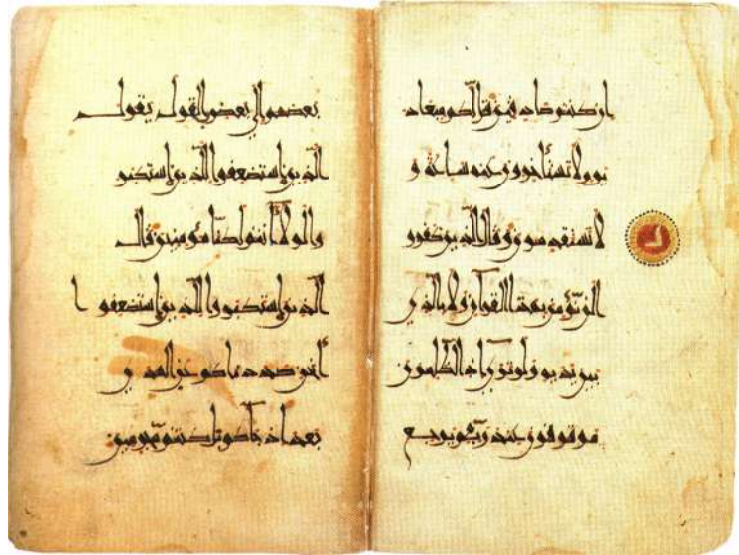 ان كنتم صادقين قل لكم ميعاد
يوم لا تستأخرون عنه ساعة و
لا تستقدمون وقال الذين كفرو
ا لن نؤمن بهذا القرآن ولا بالذي
بين يديه ولو ترى إذ الظلمون
موقوفون عند ربهم يرجع
بعضهم إلى بعض القول يقول
الذين استضعفوا للذين استكبرو
ا لولا أنتم لكنا مؤمنين قال
الذين استكبروا للذين استضعفو ا
أنحن صددناكم عن الهدى
بعد إذ جاءكم بل كنتم مجرمين